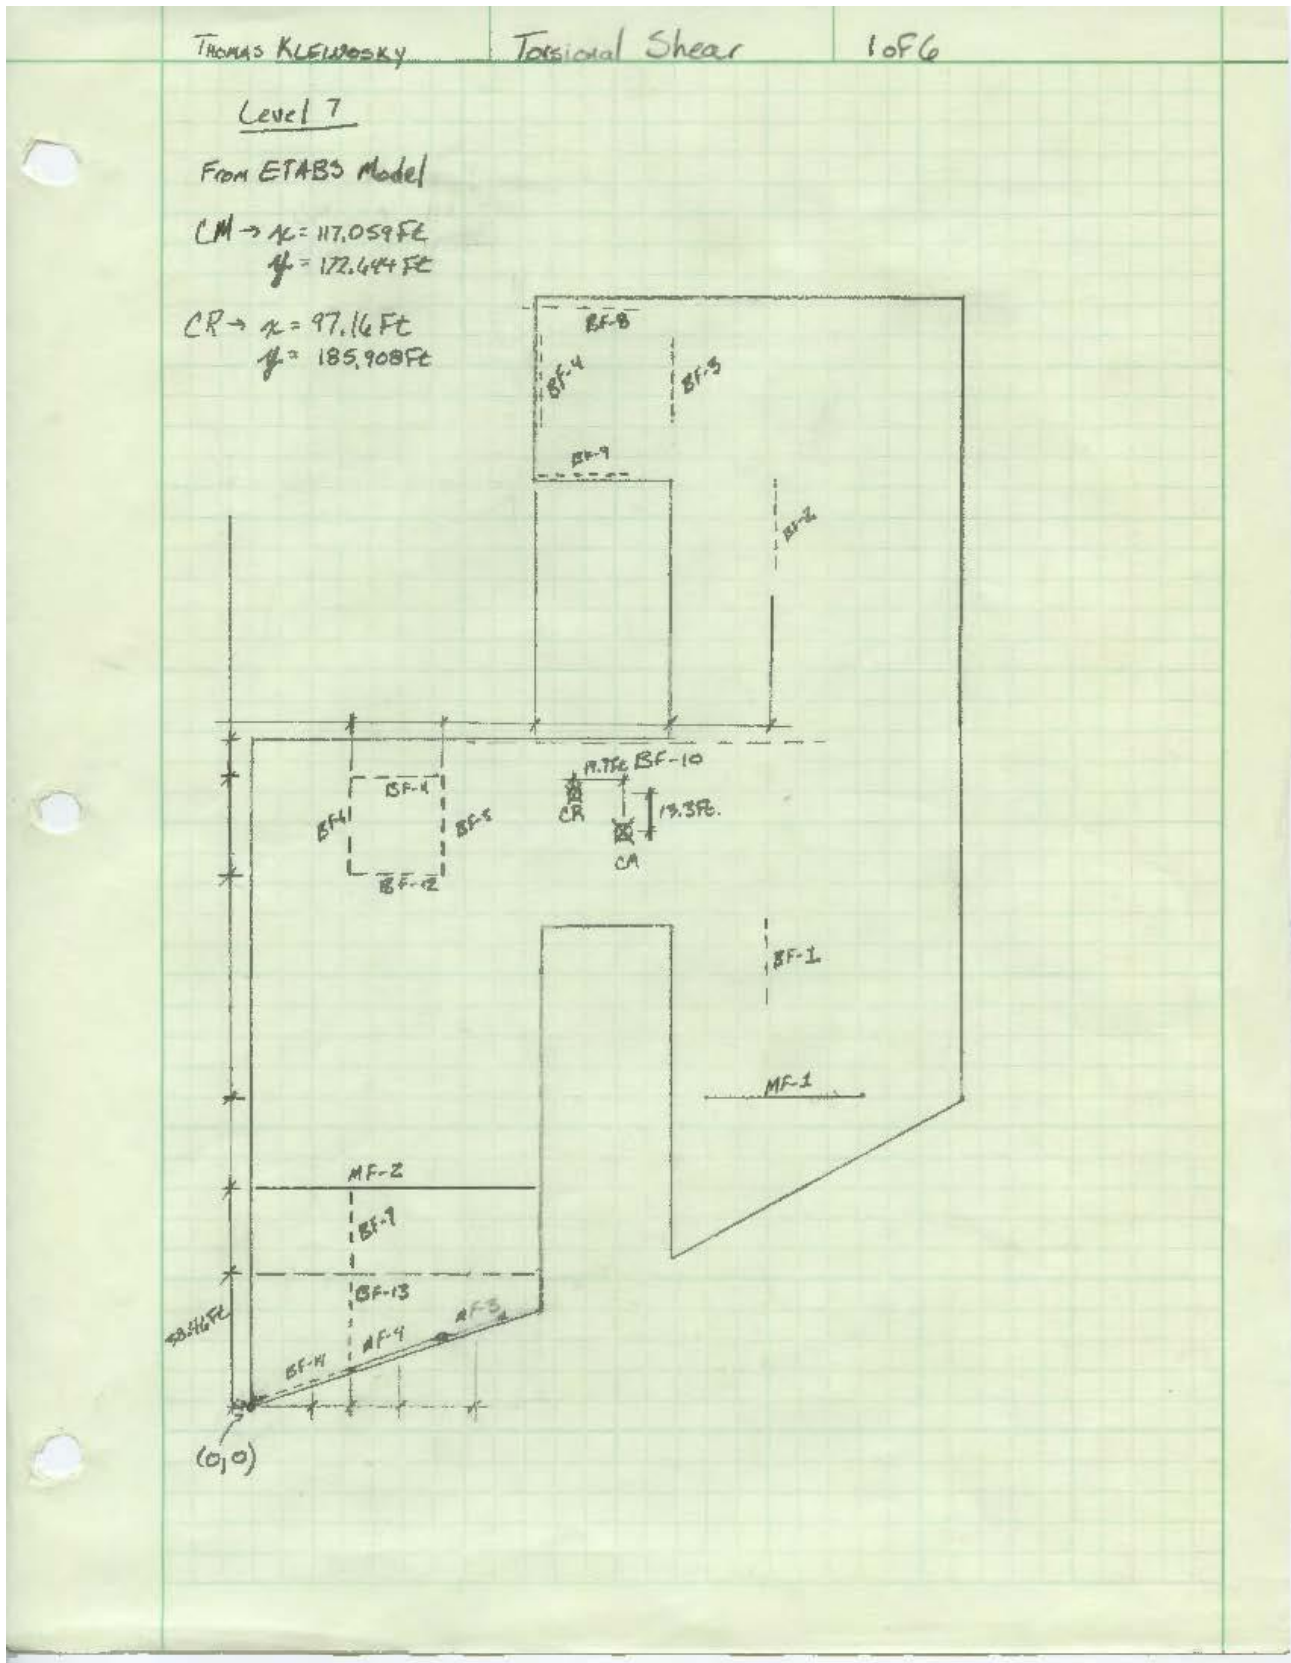 THOMAS KLEWOSKY Torsional Shear 1 of 6
Level 7
From ETABS Model
CM → x = 117.059 Ft
y = 172.644 Ft
CR → x = 97.16 Ft
y = 185.908 Ft
BF-8
BF-4
BF-3
BF-9
BF-2
BF-10
BF-11
BF-6
BF-5
CR
13.3 Ft.
BF-12
CM
BF-1
MF-1
MF-2
BF-7
BF-13
MF-3
MF-4
BF-14
(0,0)